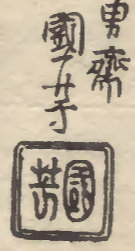 勇齋
國芳
國芳